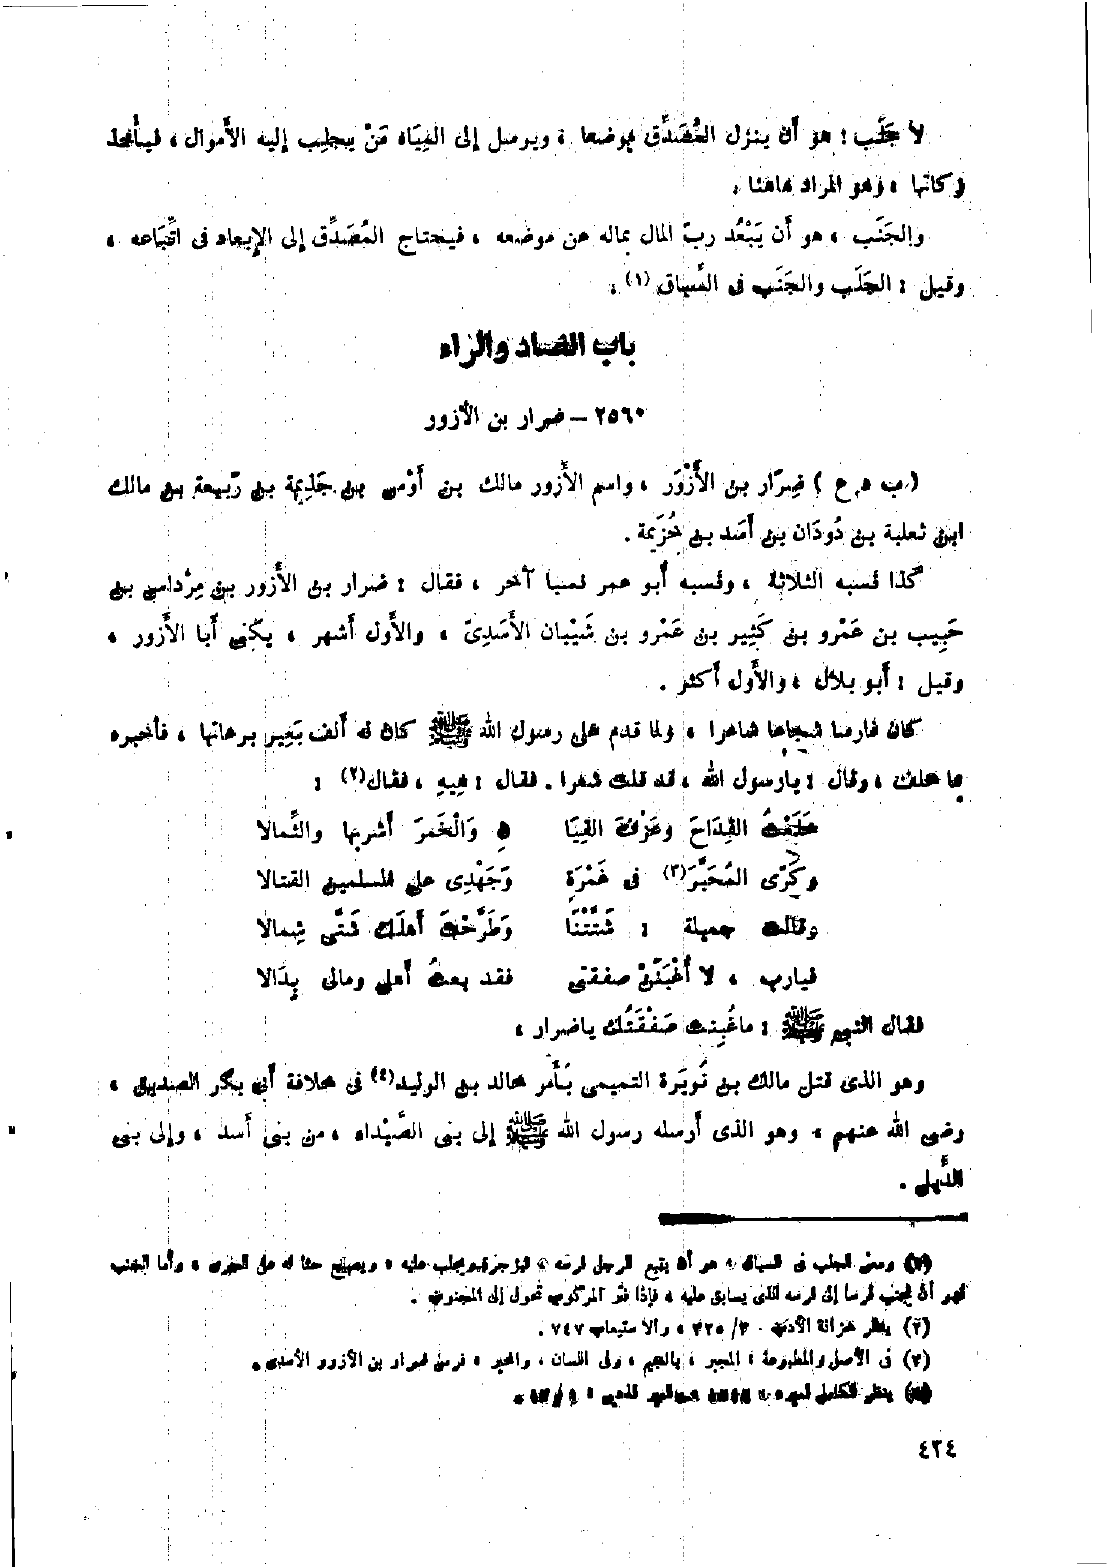 لا جَلَب : هو أن ينزل المُصَدِّق موضعا ، ويرسل إلى المِيَاه مَنْ يجلِب إليه الأموال ، فيأخذ
زكاتها ، وهو المراد هاهنا .
والجَنَب ، هو أن يَبْعُد ربّ المال بماله عن موضعه ، فيحتاج المُصَدِّق إلى الإبعاد فى اتِّبَاعه ،
وقيل : الجَلَب والجَنَب فى السِّباق (١) .
باب الضاد والراء
٢٥٦٠ – ضرار بن الأزور
( ب د ع ) ضِرَار بن الأَزْوَر ، واسم الأزور مالك بن أَوْس بن جَذِيمة بن رَبيعة بن مالك
ابن ثعلبة بن دُودَان بن أَسَد بن خُزَيمة .
كذا نسبه الثلاثة ، ونسبه أبو عمر نسبا آخر ، فقال : ضرار بن الأزور بن مِرْداس بن
حَبِيب بن عَمْرو بن كَثِير بن عَمْرو بن شَيْبان الأَسَدِىّ ، والأول أشهر ، يكنى أبا الأزور ،
وقيل : أبو بلال ، والأول أكثر .
كان فارسا شجاعا شاعرا ، ولما قدم على رسول الله ﷺ كان له ألف بَعِير برعاتها ، فأخبره
بما خلف ، وقال : يارسول الله ، قد قلت شعرا . فقال : هِيهِ ، فقال(٢) :
خَلَعْتُ القِدَاحَ وعَزْفَ القِيَا نِ وَالْخَمرَ أشربها والثِّمالا
وكَرِّى المُحَبَّرَ(٣) فى غَمْرَةٍ وَجَهْدِى على المسلمين القتالا
وقالت جميلة : شَتَّتْنَا وَطَرَّحْتَ أهلَك شَتَّى شِمالا
فيارب ، لا أُغْبَنَنْ صفقتى فقد بعتُ أهلى ومالى بِدَالا
فقال النبى ﷺ : ماغُبِنت صَفْقَتُك ياضرار ،
وهو الذى قتل مالك بن نُوَيَرة التميمى بأَمر خالد بن الوليد(٤) فى خلافة أبى بكر الصديق ،
رضى الله عنهم ، وهو الذى أرسله رسول الله ﷺ إلى بنى الصَّيْداء ، من بنى أسد ، وإلى بنى
الدِّيل .
(١) ومعنى الجلب فى السباق ، هو أن يتبع الرجل فرسه ، فيزجره ويجلب عليه ، ويصيح حثا له على الجرى ، وأما الجنب
فهو أن يجنب فرسا إلى فرسه الذى يسابق عليه ، فإذا فتر المركوب تحول إلى المجنوب .
(٢) ينظر خزانة الأدب ٣/ ٣٢٥ ، والاستيعاب ٧٤٧ .
(٣) فى الأصل والمطبوعة : المجبر ، بالجيم ، وفى اللسان ، والمحبر ، فرس ضرار بن الأزور الأسدى .
(٤) ينظر الكامل
٤٣٤